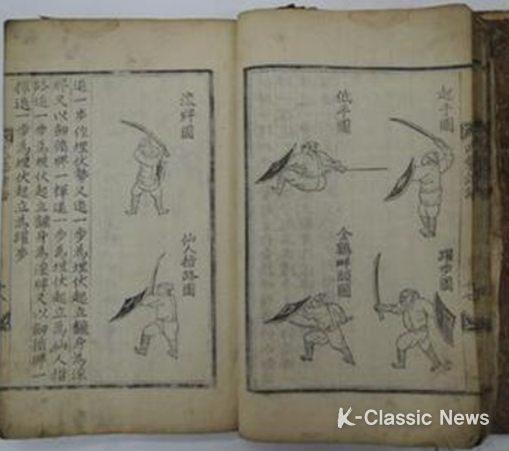 起手圖
躍步圖
低平圖
金鷄畔頭圖
滾牌圖
仙人指路圖
進一步作埋伏勢又退一步為埋伏起立飜身為滾
牌又以劔循牌一揮進一步為埋伏起立為仙人指
路進一步為埋伏起立飜身為滾牌又以劔循牌一
揮退一步為埋伏起立為躍步
K-Classic News